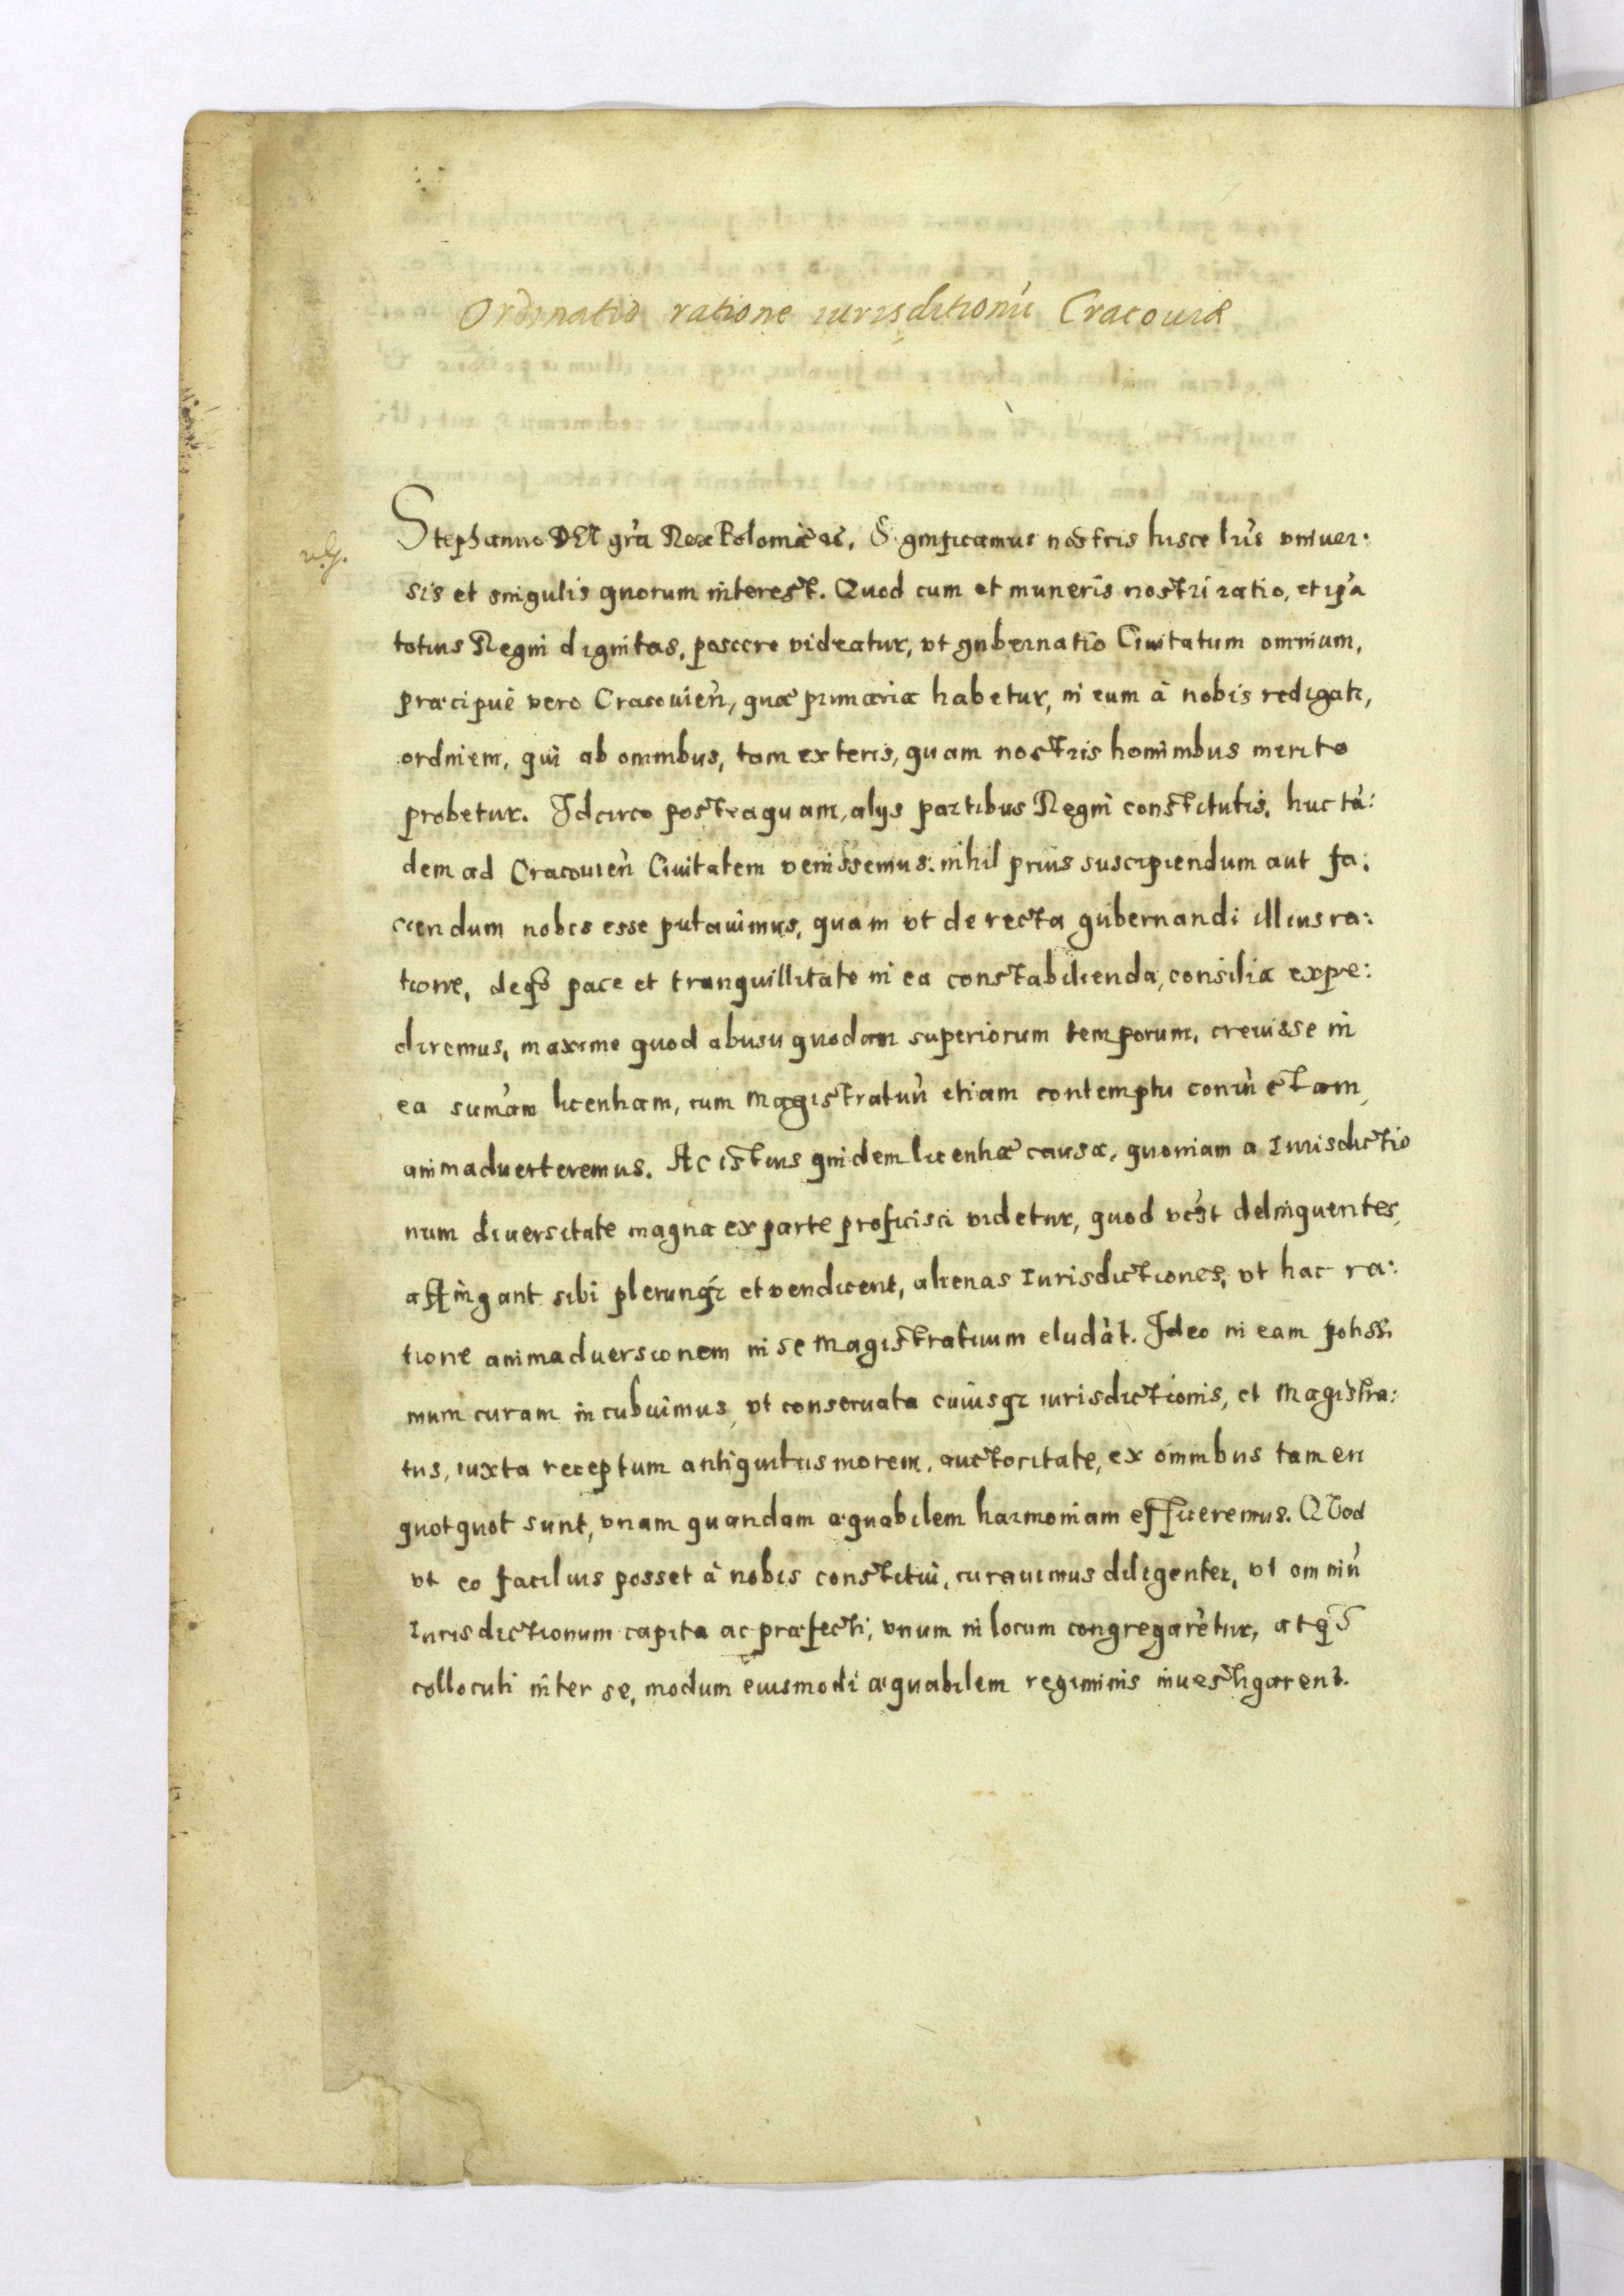 Ordinatio ratione iurisditionu Cracouiæ
Stephanus DEI gr̃a Rex Poloniæ etc. Significamus nostris hisce lr̃is vniuer:
sis et singulis quorum interest. Quod cum et muneris nostri ratio, et ip̃a
totius Regni dignitas, poscere videatur, vt gubernatio Ciuitatum omnium,
præcipuè vero Cracouien̄, quæ primaria habetur, in eum à nobis redigatr,
ordinem, qui ab omnibus, tam exteris, quam nostris hominibus merito
probetur. Idcirco posteaquam, alijs partibus Regni constitutis, huc tā:
dem ad Cracouien̄ Ciuitatem venissemus: nihil prius suscipiendum aut fa:
ciendum nobis esse putauimus, quam vt de recta gubernandi illius ra:
tione, deqꝫ pace et tranquillitate in ea constabilienda, consilia expe:
diremus, maxime quod abusu quodam superiorum temporum, creuisse in
ea sum̄am licentiam, cum Magistratuū etiam contemptu coniūctam,
animaduerteremus. Ac istius quidem licentiæ causa, quoniam a Iurisdictio
num diuersitate magna ex parte proficisci videtur, quod vcꝫt delinquentes,
affingant sibi plerunqꝫ et vendicent, alienas Iurisdictiones, vt hac ra:
tione animaduersionem in se Magistratuum eludāt. Ideo in eam potissi
mum curam incubuimus, vt conseruata cuiusqꝫ iurisdictionis, et Magistra:
tus, iuxta receptum antiquitus morem, auctoritate, ex omnibus tamen
quotquot sunt, vnam quandam æquabilem harmoniam efficeremus. Quod
vt eo facilius posset à nobis constitui, curauimus diligenter, vt omniū
Iurisdictionum capita ac præfecti, vnum in locum congregarētur, atqꝫ
collocuti inter se, modum eiusmodi æquabilem regiminis inuestigarent.